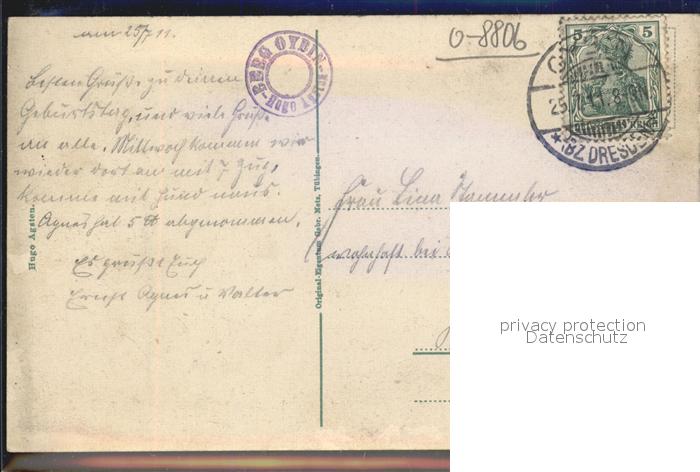 am 25/7 11.
O-8806
BERG OYBIN
5
25.7.11. 8
* (BZ DRESDEN)
Besten Grüße zu deinem
Geburtstag, und viele Grüße
an alle. Mittwoch kommen wir
wieder dort an mit 7 Zug.
komme mit Hund
Agnes hat 5 ℔ abgenommen.
Es grüßt Euch
Ernst Agnes u Walter
Hugo Agsten.
Original-Eigentum Gebr. Metz, Tübingen.
Frau Lina
wohnhaft bei
privacy protection
Datenschutz